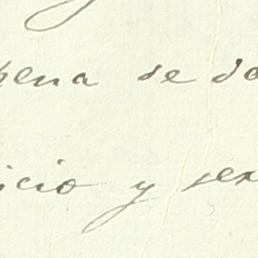 pena se de
icio y sex